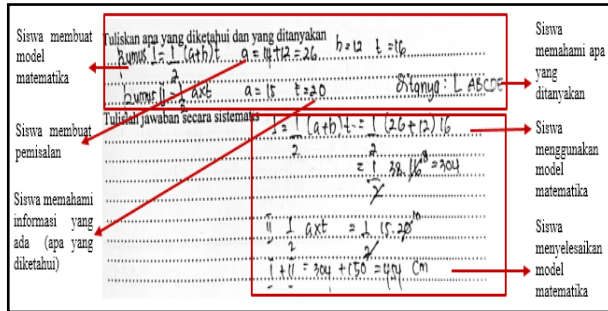 Siswa membuat model matematika
Siswa membuat pemisalan
Siswa memahami informasi yang ada (apa yang diketahui)
Tuliskan apa yang diketahui dan yang ditanyakan
Rumus I = 1/2 (a+b)t a = 14+12 = 26 b = 12 t = 16
Rumus II = 1/2 axt a = 15 t = 20 Ditanya : L ABCDE
Tulislah jawaban secara sistematis
I = 1/2 (a+b) t = 1/2 (26+12) 16
= 1/2 38. 16 8 = 304
II 1/2 axt = 1/2 15. 20 10
I + II = 304 + 150 = 454 cm
Siswa memahami apa yang ditanyakan
Siswa menggunakan model matematika
Siswa menyelesaikan model matematika